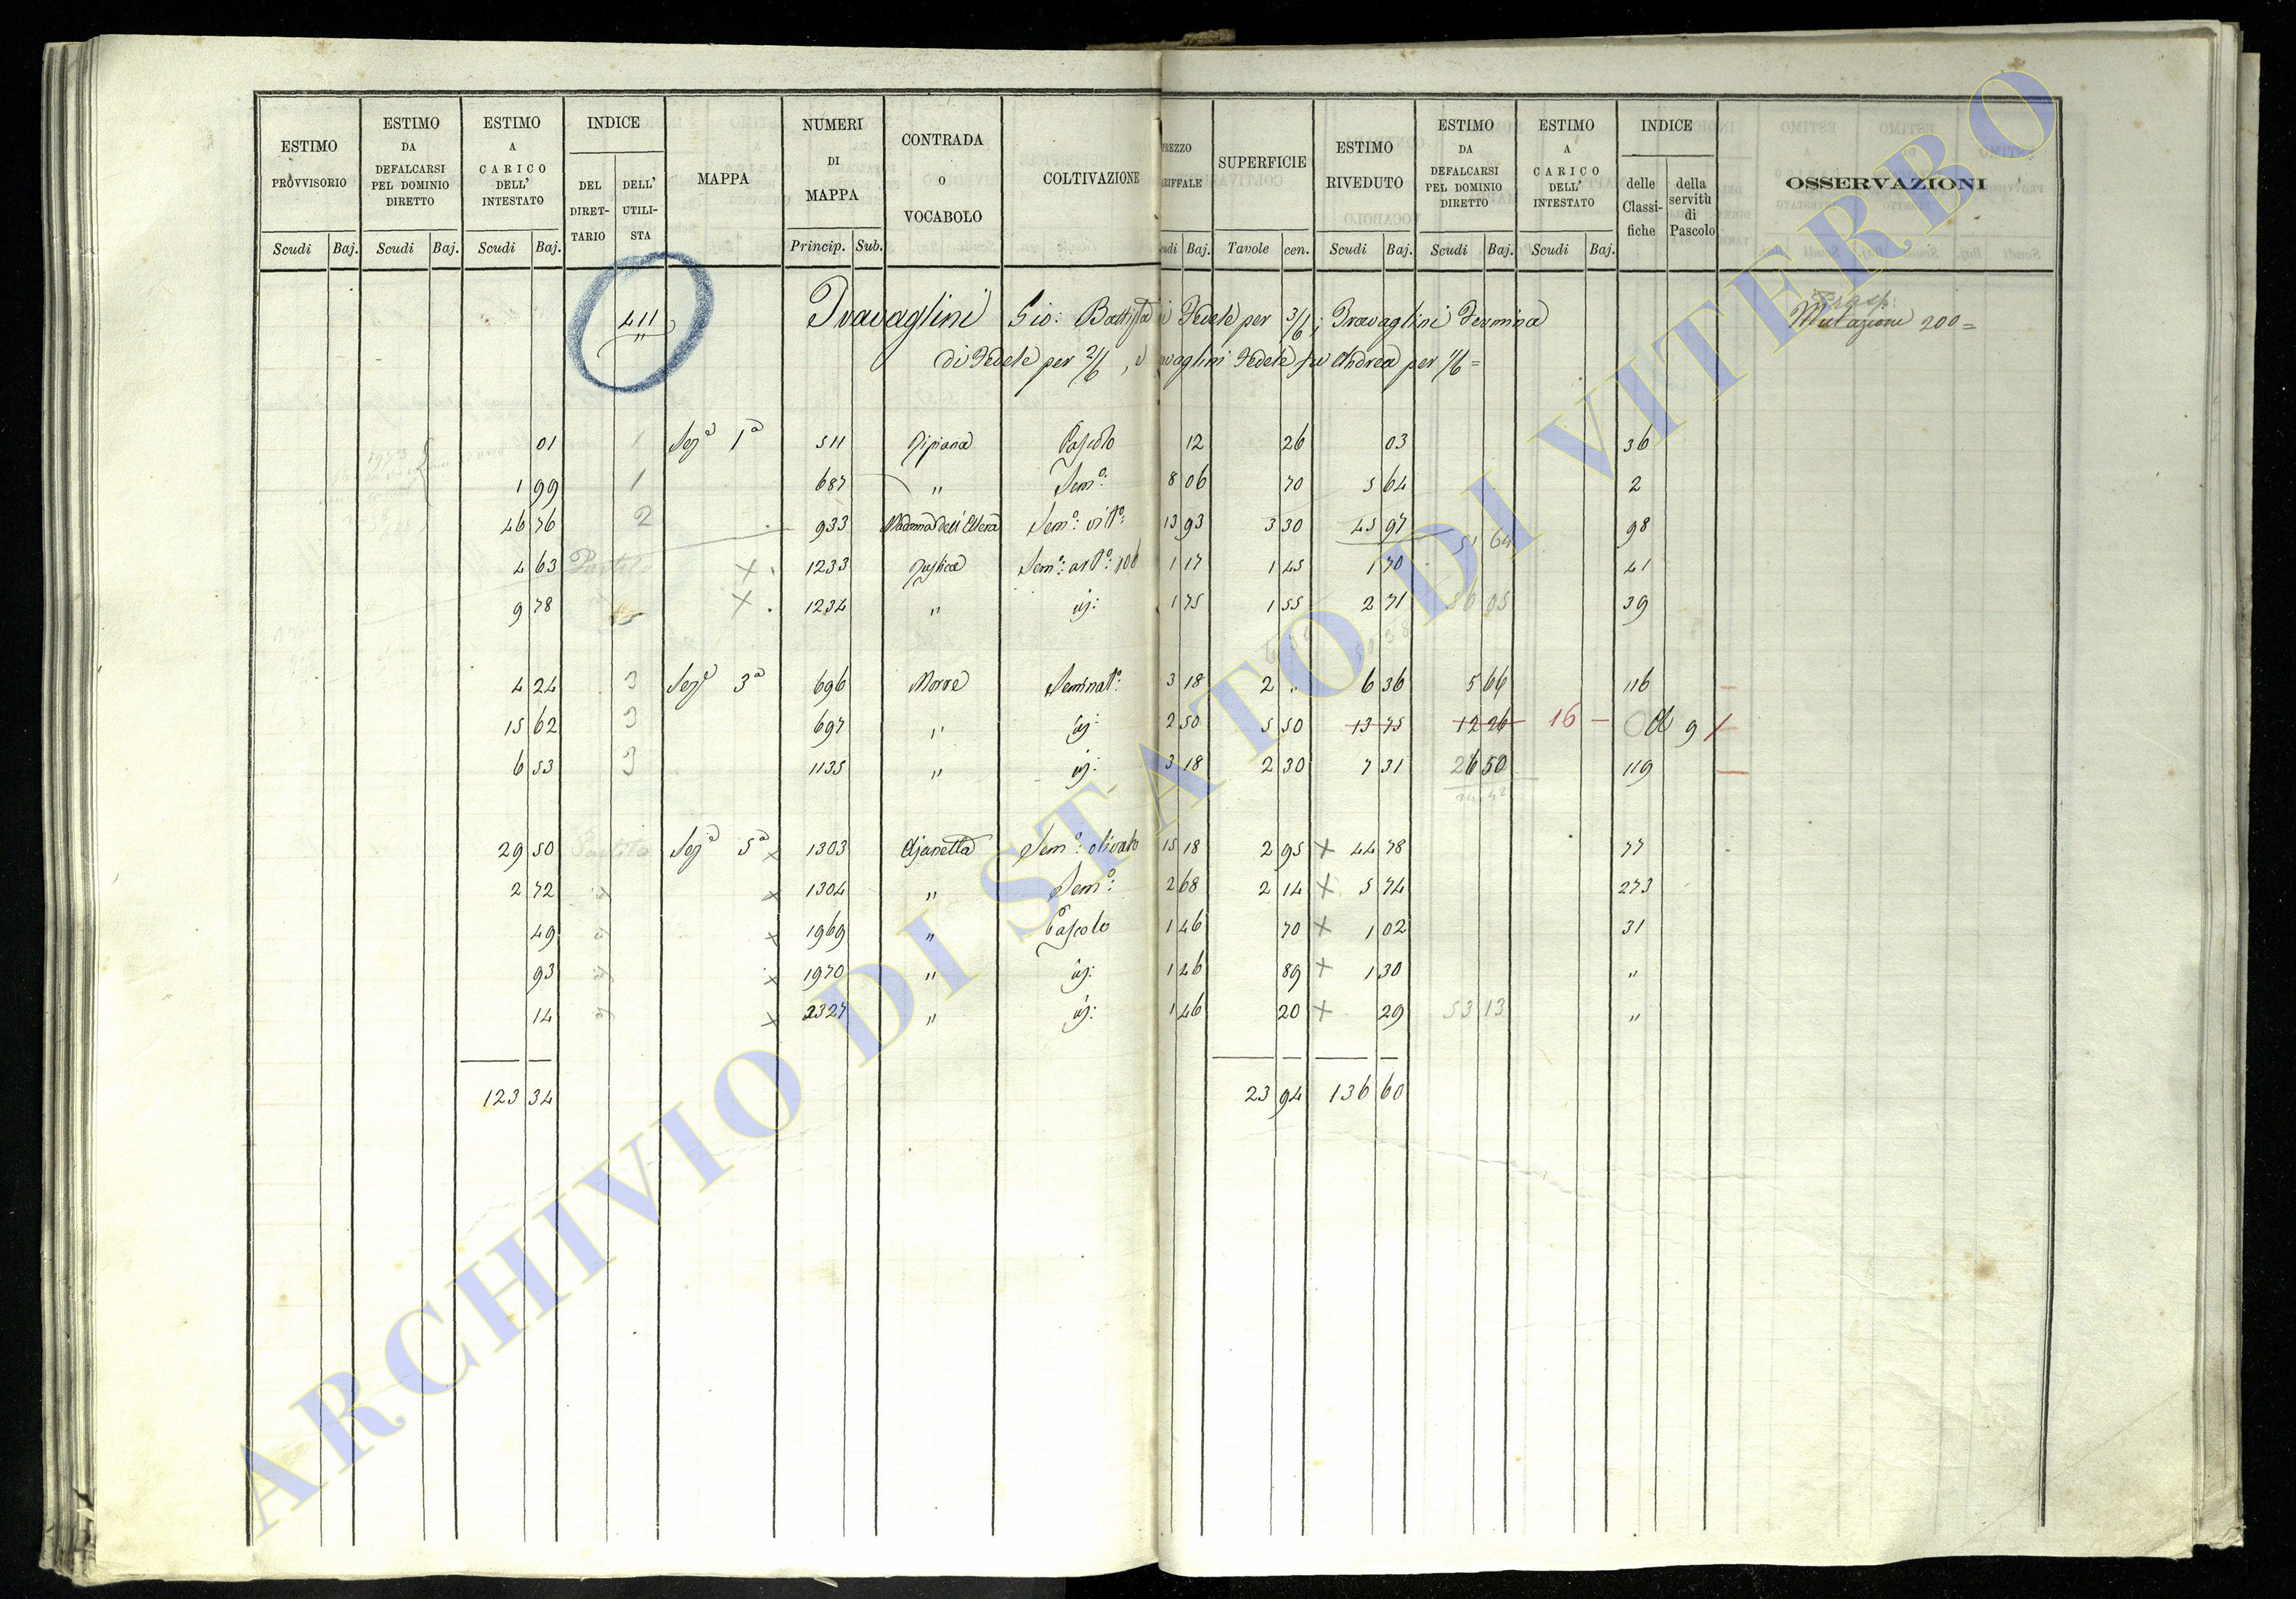 ESTIMO PROVVISORIO | ESTIMO DA DEFALCARSI PEL DOMINIO DIRETTO | ESTIMO A CARICO DELL' INTESTATO | INDICE DEL DIRETTARIO | DELL' UTILISTA | MAPPA | NUMERI DI MAPPA | CONTRADA O VOCABOLO | COLTIVAZIONE | SUPERFICIE | ESTIMO RIVEDUTO | ESTIMO DA DEFALCARSI PEL DOMINIO DIRETTO | ESTIMO A CARICO DELL' INTESTATO | INDICE delle Classifiche | della servitù di Pascolo | OSSERVAZIONI
Scudi Baj. | Scudi Baj. | Scudi Baj. | Princip. Sub. | Baj. | Tavole cen. | Scudi Baj. | Scudi Baj. | Scudi Baj.
411 Travaglini Gio: Battista di Fedele per 3/6; Travaglini Fermina Mutazione 200=
di Fedele per 2/6, Travaglini Fedele fu Andrea per 1/6=
01 1 Sez.a 1a 511 Pascolo 12 26 03 36
1 99 1 687 " Sem.o: 8 06 70 5 64 2
46 76 2 933 Sem.o: vit.o: 13 93 3 30 45 97 98
51 64
4 63 × 1233 Sem.o: 1 17 1 45 1 70 41
9 78 × 1234 " id: 1 75 1 55 2 71 39
4 24 3 Sez.e 3a 696 Morre Seminat.o: 3 18 2 " 6 36 5 64 116
15 62 3 697 " id: 2 50 5 50 13 75 12 26 16 –
6 53 3 1135 " id: 3 18 2 30 7 31 26 50 119
29 50 Sez.a 5a × 1303 Sem.o: olivato 15 18 2 95 × 44 78 77
2 72 × 1304 " Sem.o: 2 68 2 14 × 5 74 273
49 × 1969 " Pascolo 1 46 70 × 1 02 31
93 × 1970 " id: 1 46 89 × 1 30 "
14 × 2327 " id: 1 46 20 × 29 53 13 "
123 34 23 94 136 60
ARCHIVIO DI STATO DI VITERBO